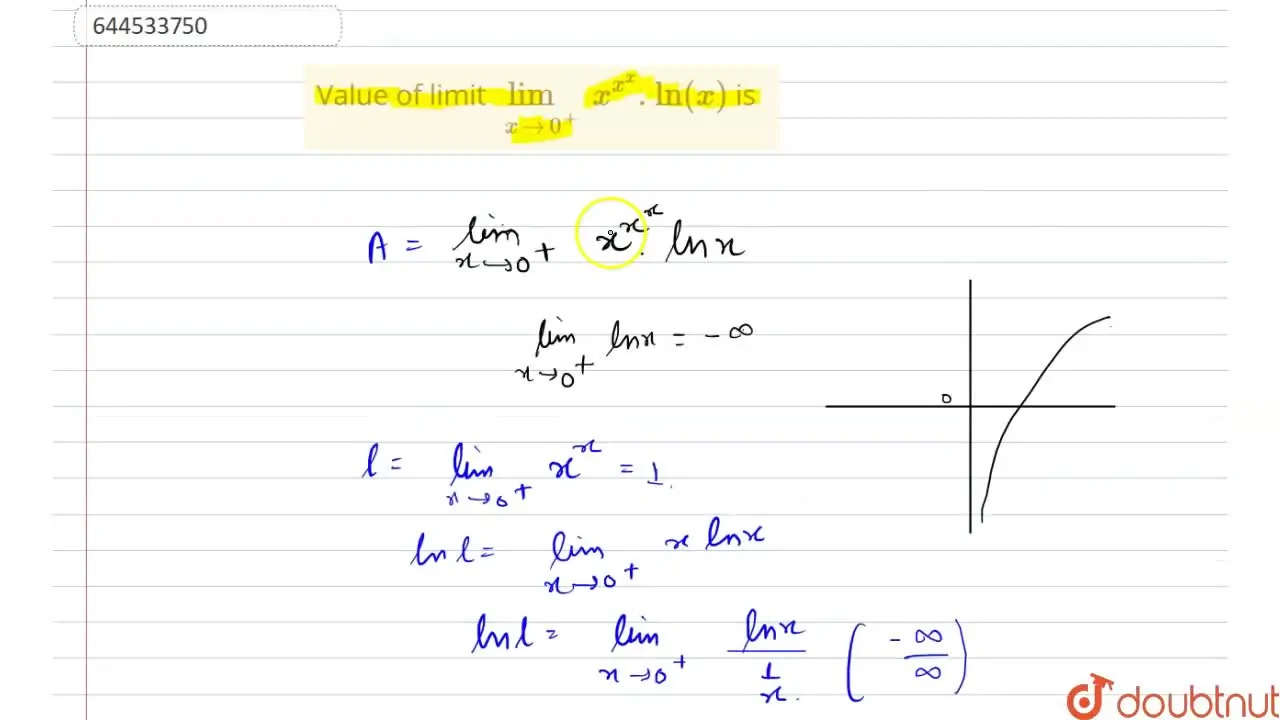 644533750
Value of limit lim_{x→0⁺} x^{x^x} . ln(x) is
A = lim_{x→0⁺} x^{x^x} . ln x
lim_{x→0⁺} ln x = −∞
0
l = lim_{x→0⁺} x^x = 1.
ln l = lim_{x→0⁺} x ln x
ln l = lim_{x→0⁺} ln x / (1/x) (−∞/∞)
doubtnut